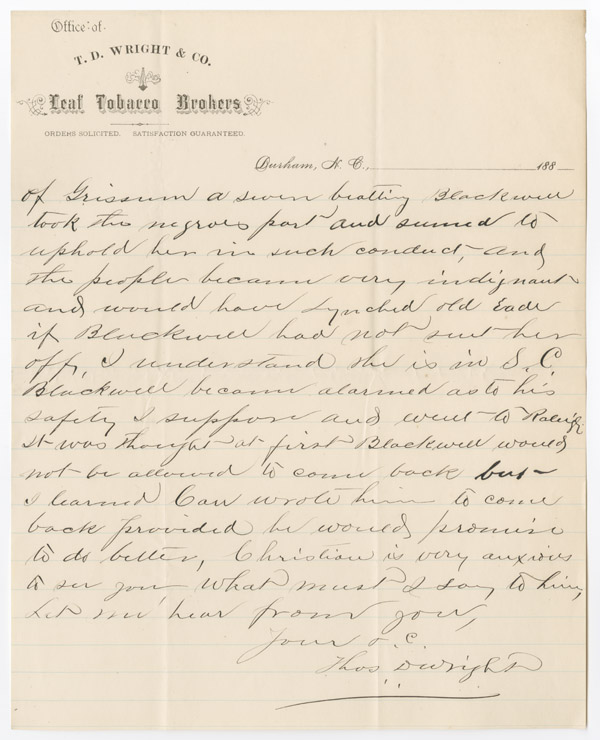 Office of
T. D. WRIGHT & CO.
Leaf Tobacco Brokers
ORDERS SOLICITED. SATISFACTION GUARANTEED.
Durham, N. C., 188
of Grissum a seven beatting Blackwell
took the negroes part and seemed to
uphold her in such conduct, and
the people became very indignant
and would have Lynched old Eade
if Blackwell had not sent her
off, I understand she is in S.C.
Blackwell became alarmed as to his
safety I suppose and went to Raleigh
it was thought at first Blackwell would
not be allowed to come back but
I learned Carr wrote him to come
back provided he would promise
to do better, Christian is very anxious
to see you, What must I say to him,
Let me hear from you,
Your
Thos. D Wright